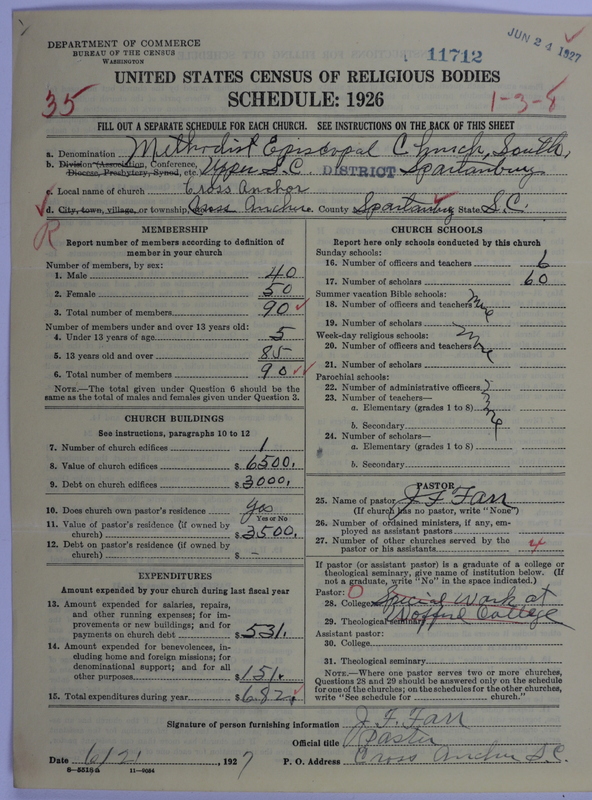 DEPARTMENT OF COMMERCE
BUREAU OF THE CENSUS
WASHINGTON
11712
JUN 24 1927
UNITED STATES CENSUS OF RELIGIOUS BODIES
35
SCHEDULE: 1926
1-3-8
FILL OUT A SEPARATE SCHEDULE FOR EACH CHURCH. SEE INSTRUCTIONS ON THE BACK OF THIS SHEET
a. Denomination Methodist Episcopal Church, South,
b. Division (Association, Conference, Diocese, Presbytery, Synod, etc. Upper S.C. DISTRICT Spartanburg
c. Local name of church Cross Anchor
d. City, town, village, or township, Cross Anchor e. County Spartanburg State S.C.
R
MEMBERSHIP
Report number of members according to definition of
member in your church
Number of members, by sex:
1. Male 40
2. Female 50
3. Total number of members 90
Number of members under and over 13 years old:
4. Under 13 years of age 5
5. 13 years old and over 85
6. Total number of members 90
NOTE.—The total given under Question 6 should be the
same as the total of males and females given under Question 3.
CHURCH BUILDINGS
See instructions, paragraphs 10 to 12
7. Number of church edifices 1
8. Value of church edifices $6500.
9. Debt on church edifices $3000.
10. Does church own pastor's residence yes
Yes or No
11. Value of pastor's residence (if owned by
church) $3500.
12. Debt on pastor's residence (if owned by
church) $ -
EXPENDITURES
Amount expended by your church during last fiscal year
13. Amount expended for salaries, repairs,
and other running expenses; for im-
provements or new buildings; and for
payments on church debt $531.
14. Amount expended for benevolences, in-
cluding home and foreign missions; for
denominational support; and for all
other purposes $151.
15. Total expenditures during year $682.
CHURCH SCHOOLS
Report here only schools conducted by this church
Sunday schools:
16. Number of officers and teachers 6
17. Number of scholars 60
Summer vacation Bible schools:
18. Number of officers and teachers None
19. Number of scholars
Week-day religious schools:
20. Number of officers and teachers None
21. Number of scholars
Parochial schools:
22. Number of administrative officers
23. Number of teachers—
a. Elementary (grades 1 to 8)
b. Secondary
24. Number of scholars—
a. Elementary (grades 1 to 8)
b. Secondary
PASTOR
25. Name of pastor J F Farr
(If church has no pastor, write "None")
26. Number of ordained ministers, if any, em-
ployed as assistant pastors
27. Number of other churches served by the
pastor or his assistants 4
If pastor (or assistant pastor) is a graduate of a college or
theological seminary, give name of institution below. (If
not a graduate, write "No" in the space indicated.)
Pastor: O
28. College Special work at
29. Theological seminary Wofford College
Assistant pastor:
30. College
31. Theological seminary
NOTE.—Where one pastor serves two or more churches,
Questions 28 and 29 should be answered only on the schedule
for one of the churches; on the schedules for the other churches,
write "See schedule for church."
Signature of person furnishing information J. F. Farr
Official title Pastor
Date 6/21, 1927 P. O. Address Cross Anchor S.C.
8—5518a 11—9034